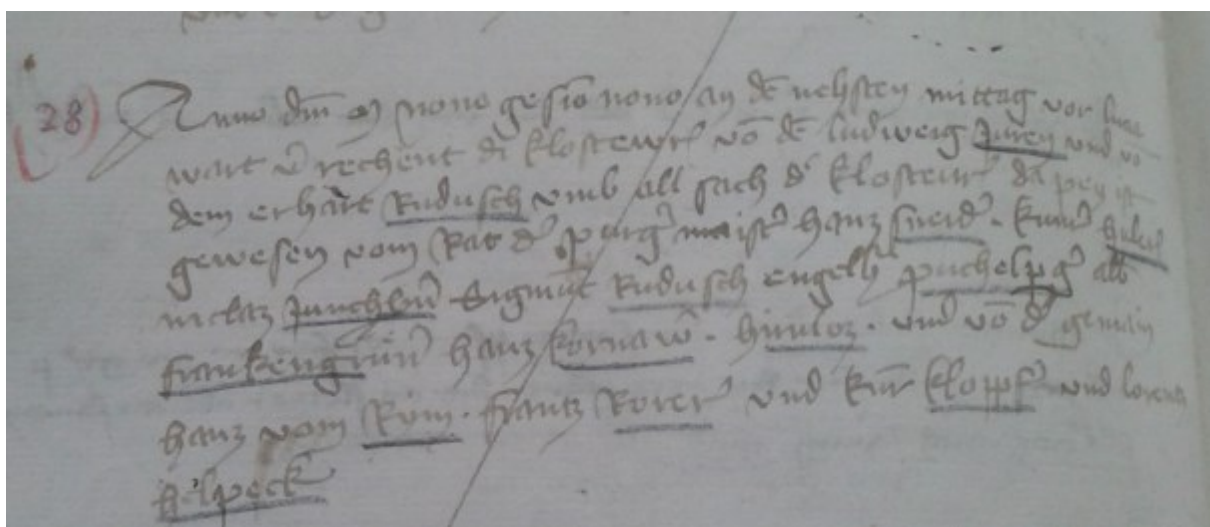 28) Anno dm m nonogesio nono an de nehsten mittag vor luce
wart v rechent di klostewr vo de ludweig Juren vnd vo
dem erhart Rudusch vmb all sach d klostewr da pey ist
gewesen vom Rat d purg maist hanz sneid. kunr
niclaz Junchhn Sigmut Rudusch engelh puchelpg alb
frankengrun hanz kornaw. hinloz. vnd vo d gemain
hanz vom Rom. frantz Rorer vnd kunr klopf vnd lorenz
helpeck